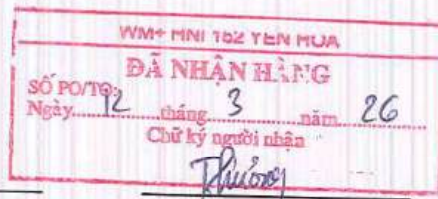 WM+ HNI 152 YEN HOA
ĐÃ NHẬN HÀNG
SỐ PO/TO:
Ngày 12 tháng 3 năm 26
Chữ ký người nhận
Thương